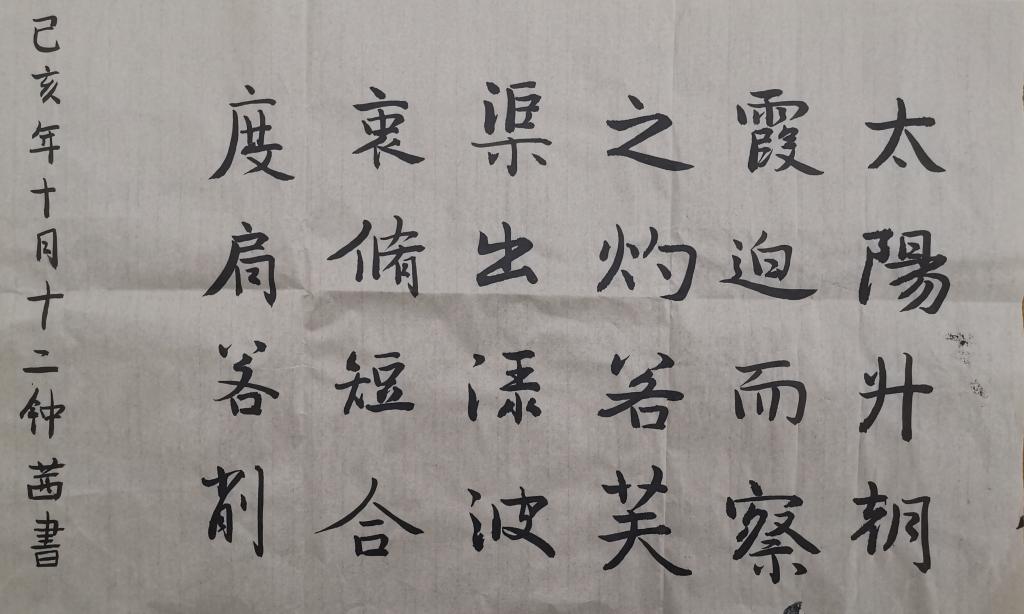 太陽升朝
霞迫而察
之灼若芙
渠出渌波
衷脩短合
度肩若削
己亥年十月十二钟茜書